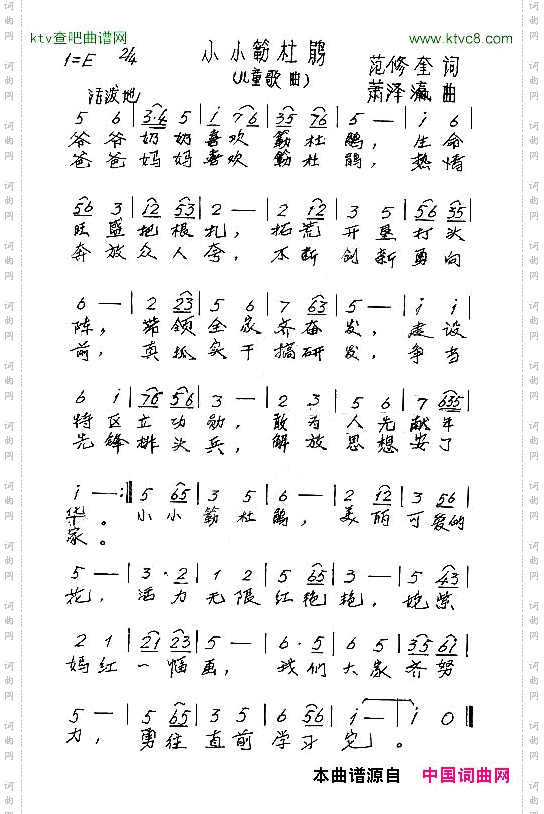 ktv查吧曲谱网 www.ktvc8.com
1=E 2/4 小小簕杜鹃
(儿童歌曲)
范修奎 词
萧泽瀛 曲
活泼地
5 6 | 3·4 5 | i 76 | 35 76 | 5 — | i 6 |
爷爷奶奶喜欢簕杜鹃，生命
爸爸妈妈喜欢簕杜鹃，热情
56 3 | 12 53 | 2 — | 2 12 | 3 5 | 56 35 |
旺盛把根扎，拓荒开垦打头
奔放众人夸，不断创新勇向
6 — | 2 23 | 5 6 | 7 65 | 5 — | i i |
阵，带领全家齐奋发，建设
前，真抓实干搞研发，争当
6 i | 76 56 | 3 — | 2 3 | 5 6 | 7 635 |
特区立功勋，敢为人先献年
先锋排头兵，解放思想安了
i — :‖ 5 65 | 3 5 | 6 — | 2 12 | 3 56 |
华。小小簕杜鹃，美丽可爱的
家。
5 — | 3·2 | 1 2 | 5 65 | 3 — | 5 43 |
花，活力无限红艳艳，姹紫
2 1 | 21 23 | 5 — | 6·5 | 6 6 | 35 61 |
嫣红一幅画，我们大家齐努
5 — | 5 65 | 3 5 | 6 56 | i — | i 0 ‖
力，勇往直前学习它。
本曲谱源自 中国词曲网